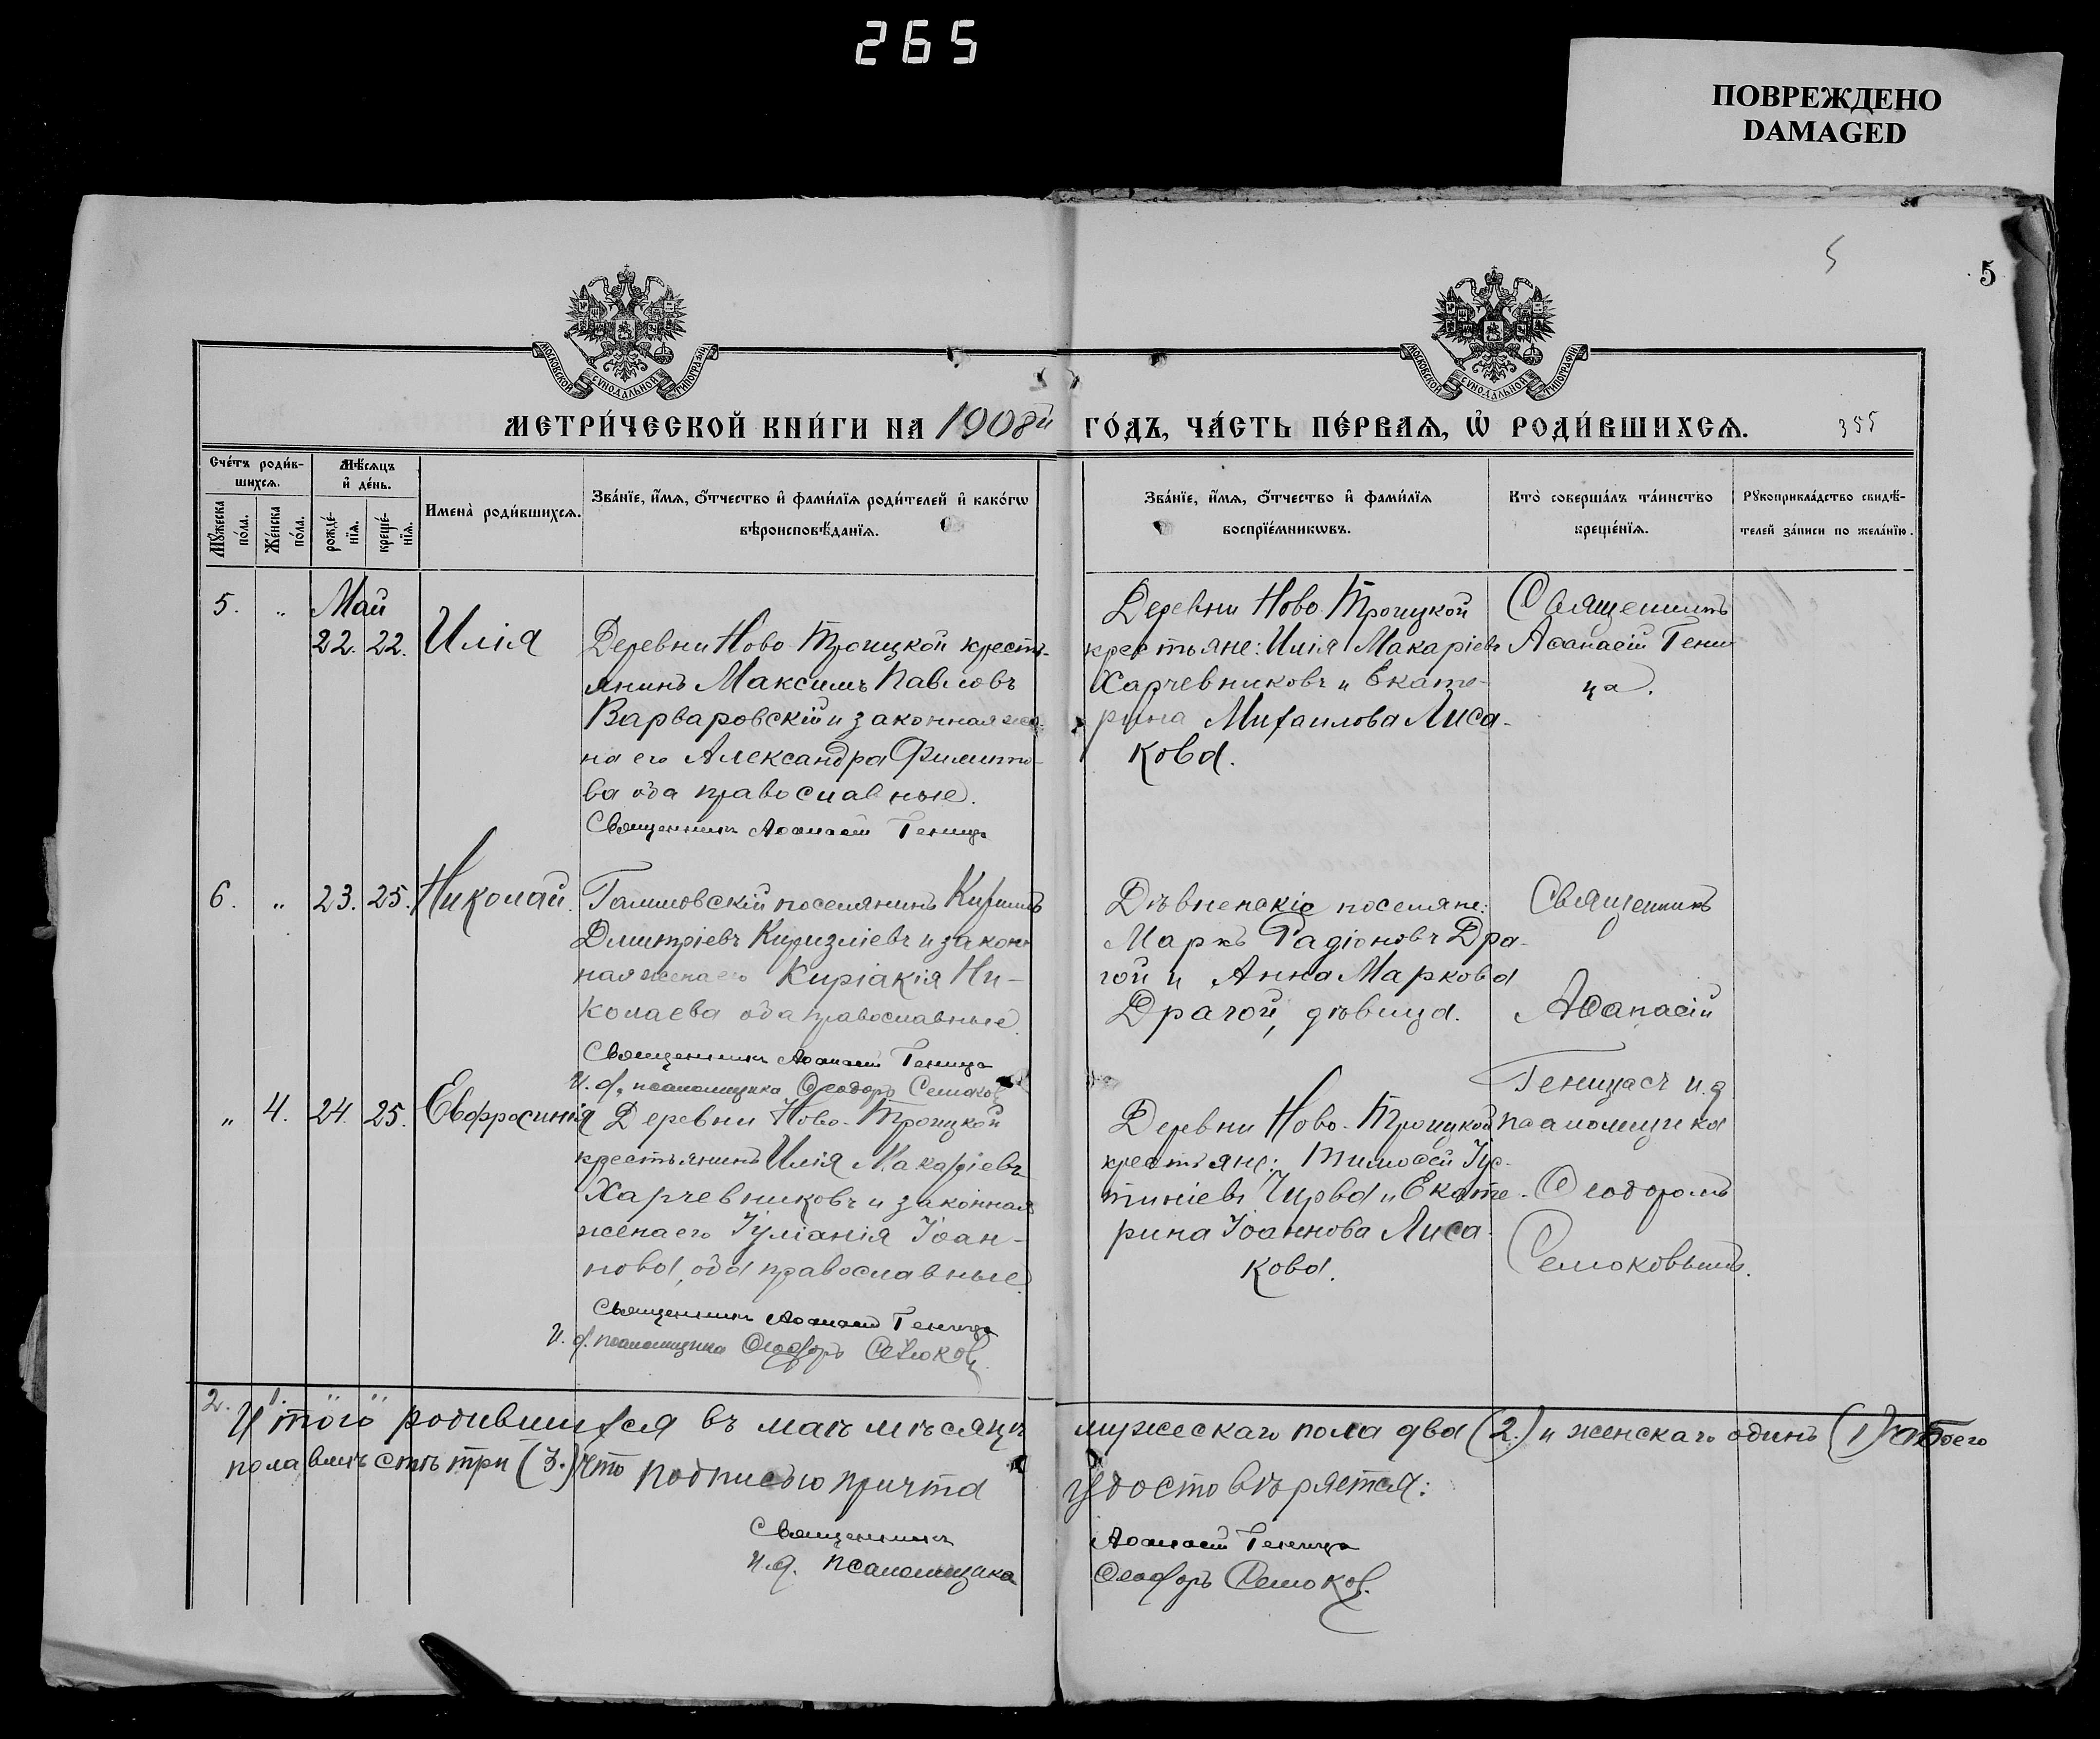 265
ПОВРЕЖДЕНО
DAMAGED
5
5
МОСКОВСКОЙ СѴНОДАЛЬНОЙ ТИПОГРАФІИ
МОСКОВСКОЙ СѴНОДАЛЬНОЙ ТИПОГРАФІИ
МЕТРИ́ЧЕСКОЙ КНИ́ГИ НА 1908й ГО́ДЪ, ЧА́СТЬ ПЕ́РВАѦ, Ѽ РОДИ́ВШИХСѦ. 355
Сче́тъ роди́в-
шихсѧ.
Мꙋжеска по́ла.
Же́нска по́ла.
Мѣ́сѧцъ
и҆ де́нь.
рожде́нїѧ.
креще́нїѧ.
Имена̀ роди́вшихсѧ.
Зва́нїе, и҆́мѧ, ѻ҆́тчество и҆ фами́лїѧ роди́телей и҆ како́гѡ
вѣроисповѣ́данїѧ.
Зва́нїе, и҆́мѧ, ѻ҆́тчество и҆ фами́лїѧ
воспрїе́мникѡвъ.
Кто̀ соверша́лъ та́инство
креще́нїѧ.
Рꙋкоприкла́дство свидѣ́-
телей за́писи по жела́нїю.
5. „ Май
22. 22. Илія
Деревни Ново-Троицкой кресть-
янинъ Максимъ Павловъ
Варваровскій и законная же-
на его Александра Филиппо-
ва оба православные.
Священникъ Аѳанасій Геница
Деревни Ново-Троицкой
крестьяне: Илія Макаріевъ
Харчевниковъ и Екате-
рина Михаилова Лиса-
кова.
Священникъ
Аѳанасій Гени
ца.
6. „ 23. 25. Николай.
Галиловскій поселянинъ Кириллъ
Дмитріевъ и закон-
ная жена его Киріакія Ни-
колаева оба православные.
Священникъ Аѳанасій Геница
И. д. псаломщика Ѳеодоръ Семоков
Дѣвненскіе поселяне:
Маркъ Радіоновъ Дра-
гой и Анна Маркова
Драгой, дѣвица.
Священникъ
Аѳанасій
Геница съ и. д
псаломщика
Ѳеодоромъ
Семоковымъ.
„ 4. 24. 25. Евфросинія
Деревни Ново-Троицкой
крестьянинъ Илія Макаріевъ
Харчевниковъ и законная
жена его Іуліанія Іоан-
нова, оба православные.
Священникъ Аѳанасій Геница
И. д. псаломщика Ѳеодоръ Семоков
Деревни Ново-Троицкой
крестьяне: Тимоѳей Іус-
тиніевъ Чирва и Екате-
рина Іоаннова Лиса-
кова.
2. 1. „ „
Итого родившихся въ маѣ мѣсяцѣ мужескаго пола два (2.) и женскаго одинъ (1) а обоего
пола вмѣстѣ три (3.) что подписью причта удостовѣряется:
Священникъ Аѳанасій Геница
и.д. псаломщика Ѳеодоръ Семоков.